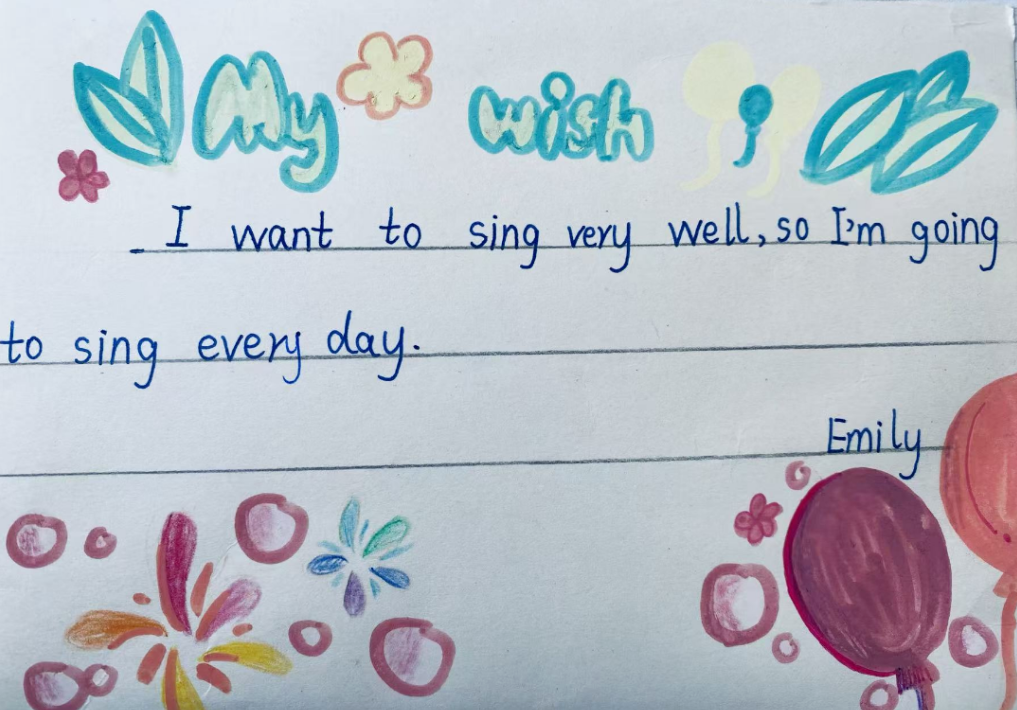 My wish
I want to sing very well, so I'm going
to sing every day.
Emily